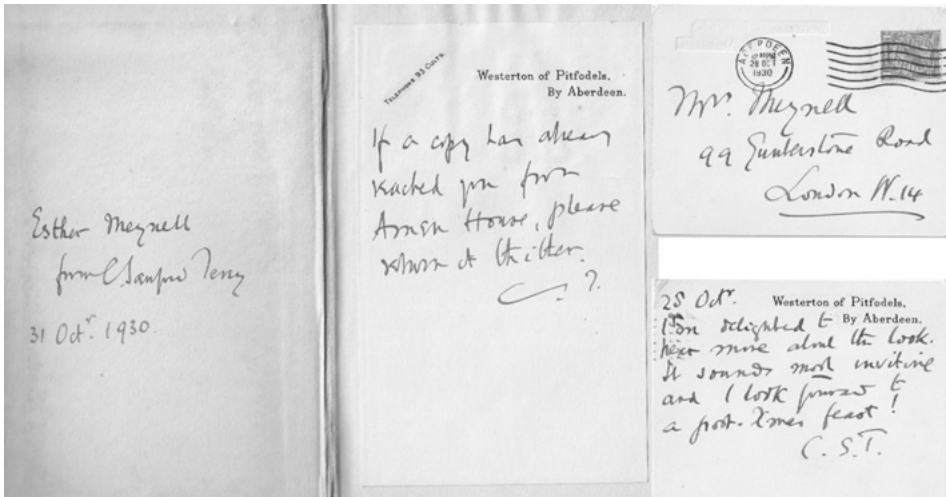 Esther Meynell
from C. Sanford Terry
31 Octr. 1930.
TELEPHONE 93 CULTS.
Westerton of Pitfodels,
By Aberdeen.
If a copy has already
reached you from
Amen House, please
return it thither.
ABERDEEN
28 OCT
1930
Mrs. Meynell
99 Gunterstone Road
London W.14
28 Octr.
Westerton of Pitfodels,
By Aberdeen.
I am delighted to
hear more about the book.
It sounds most inviting
and I look forward to
a post-Xmas feast!
C. S. T.